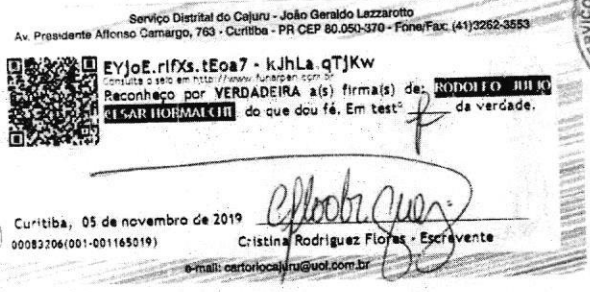 Serviço Distrital do Cajuru - João Geraldo Lazzarotto
Av. Presidente Affonso Camargo, 763 - Curitiba - PR CEP 80.050-370 - Fone/Fax: (41)3262-3553
EYJoE.rlfXs.tEoa7 - kJhLa.qTJKw
Consulte o selo em http://www.funarpen.com.br
Reconheço por VERDADEIRA a(s) firma(s) de: RODOLFO JULIO
CESAR HORMAECHE do que dou fé. Em testº da verdade.
Curitiba, 05 de novembro de 2019
00083206(001-001165019) Cristina Rodriguez Flores - Escrevente
e-mail: cartoriocajuru@uol.com.br